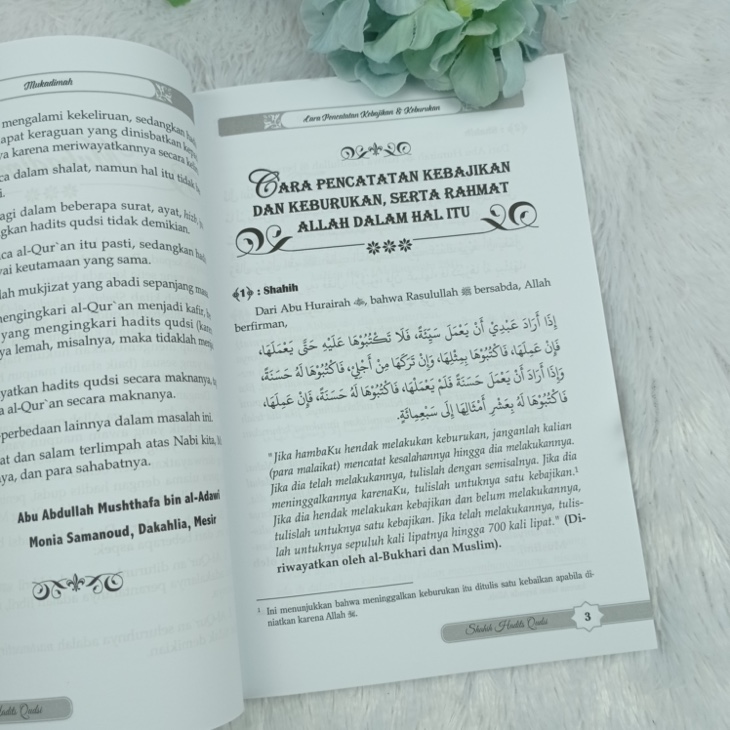 Mukadimah
mengalami kekeliruan, sedangkan
apat keraguan yang dinisbatkan
a karena meriwayatkannya secara
ca dalam shalat, namun hal itu tidak
i.
agi dalam beberapa surat, ayat, hizb,
gkan hadits qudsi tidak demikian.
ca al-Qur`an itu pasti, sedangkan
ai keutamaan yang sama.
lah mukjizat yang abadi sepanjang
engingkari al-Qur`an menjadi kafir,
yang mengingkari hadits qudsi
ya lemah, misalnya, maka tidaklah
yatkan hadits qudsi secara maknanya,
a al-Qur`an secara maknanya.
perbedaan lainnya dalam masalah ini.
at dan salam terlimpah atas Nabi kita,
ya, dan para sahabatnya.
Abu Abdullah Mushthafa bin al-Adawi
Monia Samanoud, Dakahlia, Mesir
Hadits Qudsi
Cara Pencatatan Kebajikan & Keburukan
CARA PENCATATAN KEBAJIKAN
DAN KEBURUKAN, SERTA RAHMAT
ALLAH DALAM HAL ITU
﴾1﴿ : Shahih
Dari Abu Hurairah, bahwa Rasulullah ﷺ bersabda, Allah
berfirman,
إِذَا أَرَادَ عَبْدِيْ أَنْ يَعْمَلَ سَيِّئَةً، فَلَا تَكْتُبُوْهَا عَلَيْهِ حَتَّى يَعْمَلَهَا،
فَإِنْ عَمِلَهَا، فَاكْتُبُوْهَا بِمِثْلِهَا، وَإِنْ تَرَكَهَا مِنْ أَجْلِيْ، فَاكْتُبُوْهَا لَهُ حَسَنَةً،
وَإِذَا أَرَادَ أَنْ يَعْمَلَ حَسَنَةً فَلَمْ يَعْمَلْهَا، فَاكْتُبُوْهَا لَهُ حَسَنَةً، فَإِنْ عَمِلَهَا،
فَاكْتُبُوْهَا لَهُ بِعَشْرِ أَمْثَالِهَا إِلَى سَبْعِمِائَةٍ.
"Jika hambaKu hendak melakukan keburukan, janganlah kalian
(para malaikat) mencatat kesalahannya hingga dia melakukannya.
Jika dia telah melakukannya, tulislah dengan semisalnya. Jika dia
meninggalkannya karenaKu, tulislah untuknya satu kebajikan.¹
Jika dia hendak melakukan kebajikan dan belum melakukannya,
tulislah untuknya satu kebajikan. Jika telah melakukannya, tulis-
lah untuknya sepuluh kali lipatnya hingga 700 kali lipat." (Di-
riwayatkan oleh al-Bukhari dan Muslim).
¹ Ini menunjukkan bahwa meninggalkan keburukan itu ditulis satu kebaikan apabila di-
niatkan karena Allah
Shahih Hadits Qudsi
3